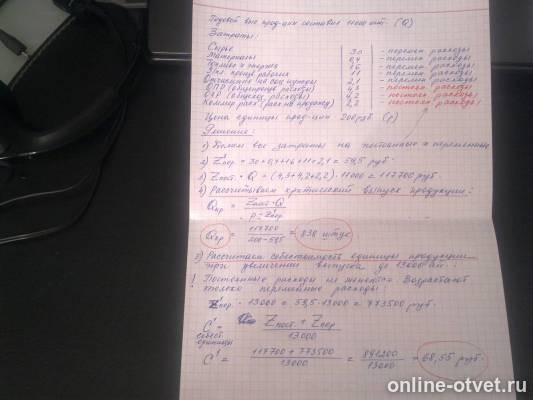 Годовой вып. прод-ции составил 11000 шт. (Q)
Затраты:
Сырье 30 - перемен. расходы
Материалы 0,4 - перемен. расходы
Топливо и энергия 16 - перемен. расходы
З/пл. произв. рабочих 11 - перемен. расходы
2,1 - перемен. расходы
ОПР (общепроизв. расходы) 4,3 - постоян. расходы
ОХР (общехоз. расходы) 4,2 - постоян. расходы
Коммер. расх. (расх. на продажу) 2,2 - постоян. расходы
Цена единицы прод-ции 200 руб. (p)
Решение:
1) Делим все затраты на постоянные и переменные
2) Z'пер. = 30+0,4+16+11+2,1 = 59,5 руб.
3) Zпост. · Q = (4,3+4,2+2,2) · 11000 = 117700 руб.
4) Рассчитываем критический выпуск продукции:
Qкр = Zпост · Q / p - Z'пер
Qкр = 117700 / 200-59,5 = 838 штук
5) Рассчитаем себестоимость единицы продукции
при увеличении выпуска до 13000 шт.:
! Постоянные расходы не меняются. Возрастают
только переменные расходы:
Z'пер. · 13000 = 59,5 · 13000 = 773500 руб.
C' себест. единицы = Zпост. + Zпер / 13000
C' = 117700 + 773500 / 13000 = 891200 / 13000 = 68,55 руб.
online-otvet.ru